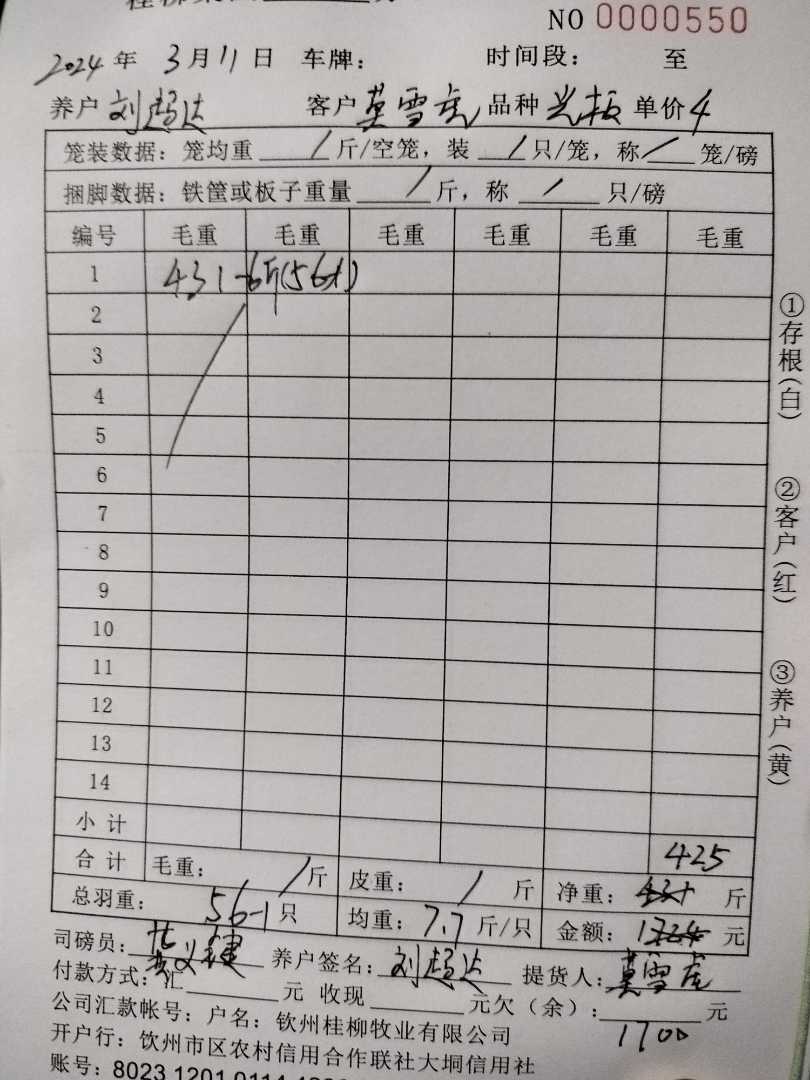 NO 0000550
2024 年 3 月 11 日 车牌： 时间段： 至
养户 刘超达 客户 莫雪虎 品种 光板 单价 4
笼装数据：笼均重 / 斤/空笼，装 / 只/笼，称 / 笼/磅
捆脚数据：铁筐或板子重量 / 斤，称 / 只/磅
编号 毛重 毛重 毛重 毛重 毛重 毛重
1 431-6斤(56只)
2
3
4
5
6
7
8
9
10
11
12
13
14
小计
425
合计 毛重： / 斤 皮重： / 斤 净重： 431 斤
总羽重： 56-1 只 均重： 7.7 斤/只 金额： 1724 元
司磅员： 养户签名： 刘超达 提货人： 莫雪虎
付款方式：汇 元 收现 元欠（余）： 元
1700
公司汇款帐号：户名：钦州桂柳牧业有限公司
开户行：钦州市区农村信用合作联社大垌信用社
账号：8023 1201 0114
①存根（白）
②客户（红）
③养户（黄）